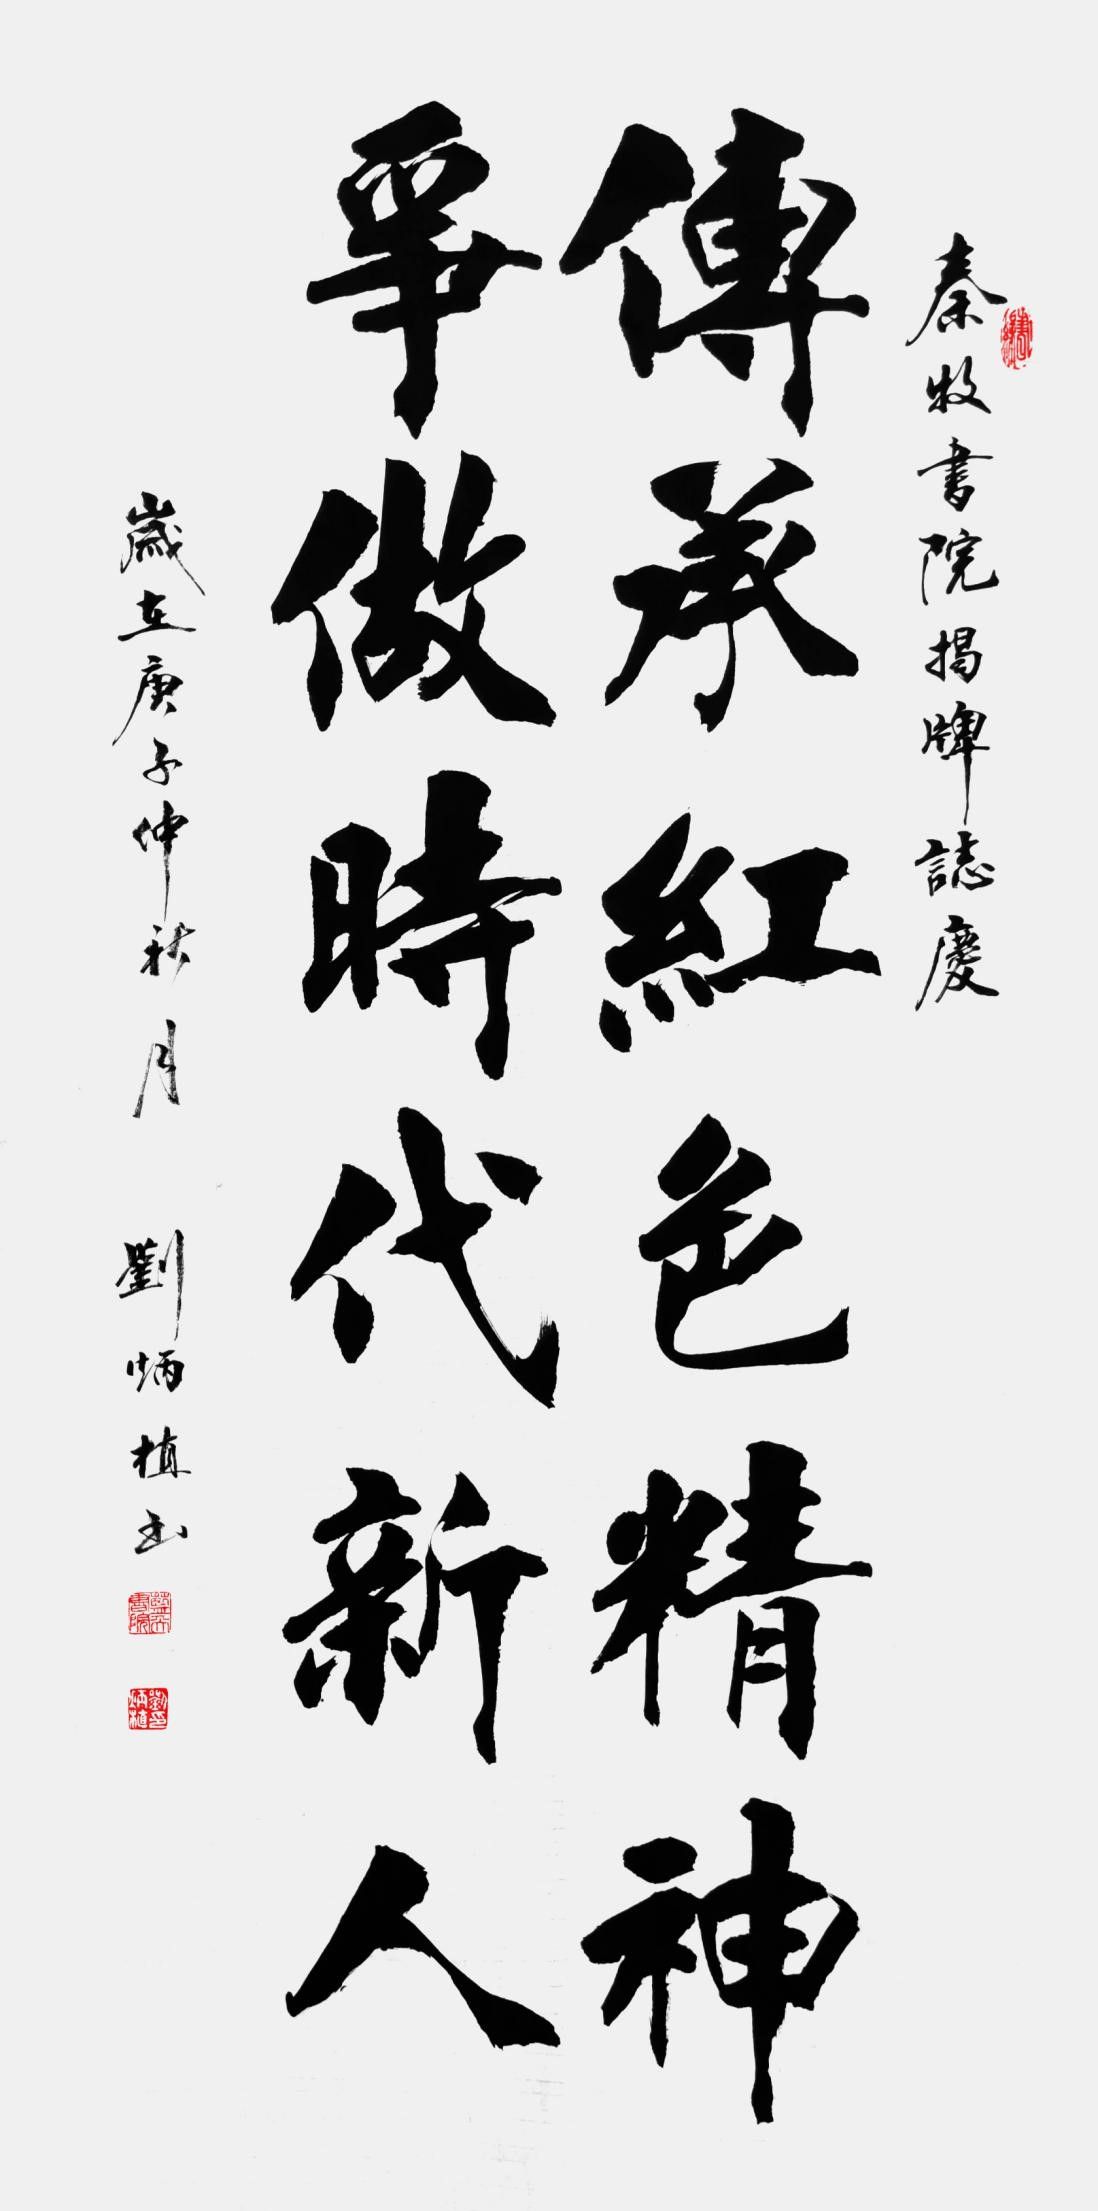 秦牧書院揭牌誌慶
傳承紅色精神
爭做時代新人
歲在庚子仲秋月 劉炳植书
劉炳植印